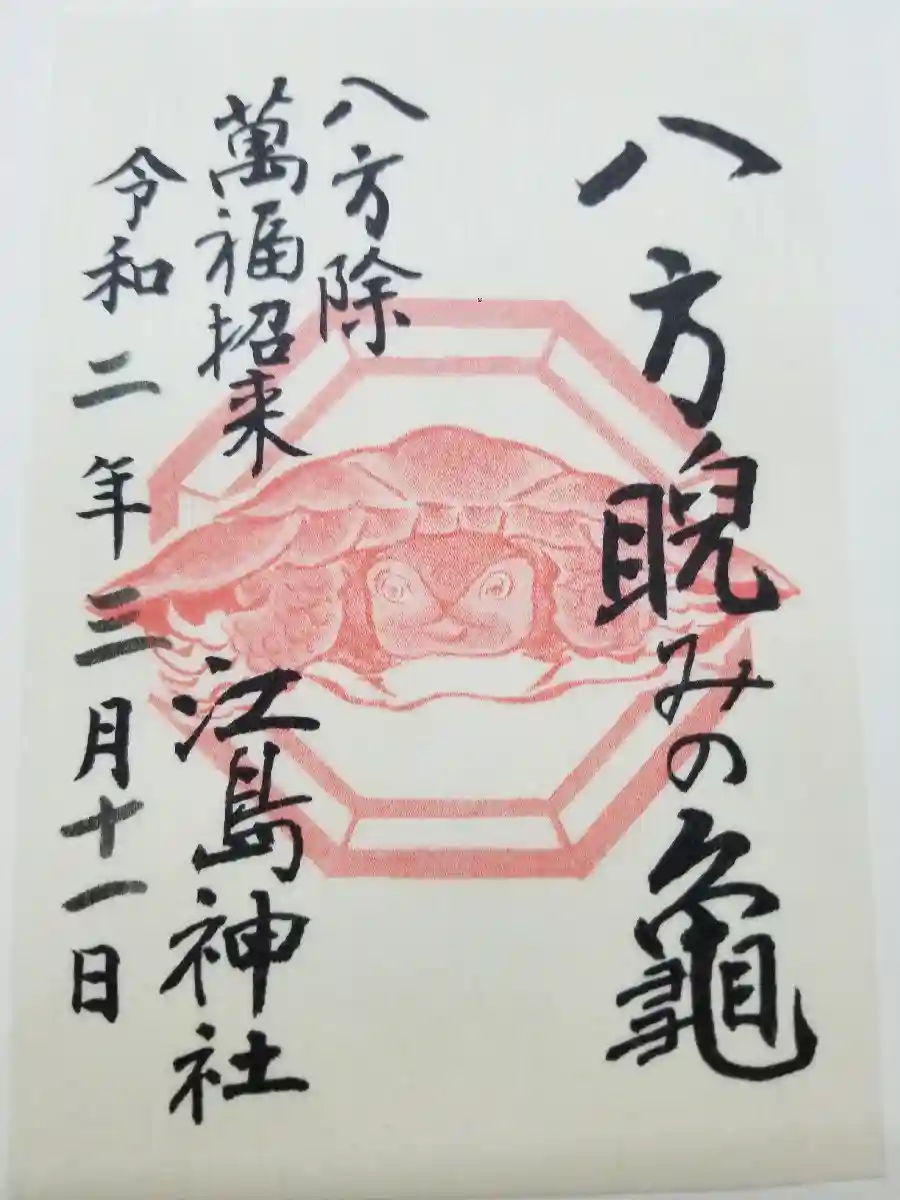 八方睨みの龜
八方除
萬福招来
江島神社
令和二年三月十一日